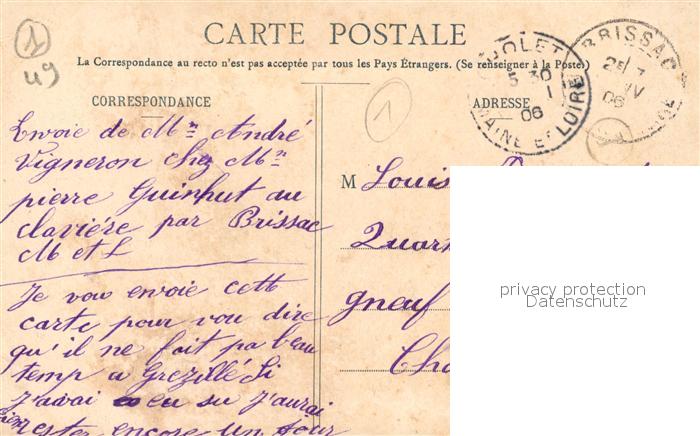 1
49
CARTE POSTALE
La Correspondance au recto n'est pas acceptée par tous les Pays Étrangers. (Se renseigner à la Poste)
CORRESPONDANCE
Envoie de Mr André
Vigneron chez Mr
pierre Guinhut au
clavière par Brissac
M et L
Je vou envoie cett
carte pour vou dire
qu'il ne fait pa beau
temp a Grezillé Si
J'avai eu su J'aurai
rester encore un jour
1
ADRESSE
CHOLET
5 30
1
06
MAINE ET LOIRE
BRISSAC
25
06
M Louis
gneuf
Cho
privacy protection
Datenschutz